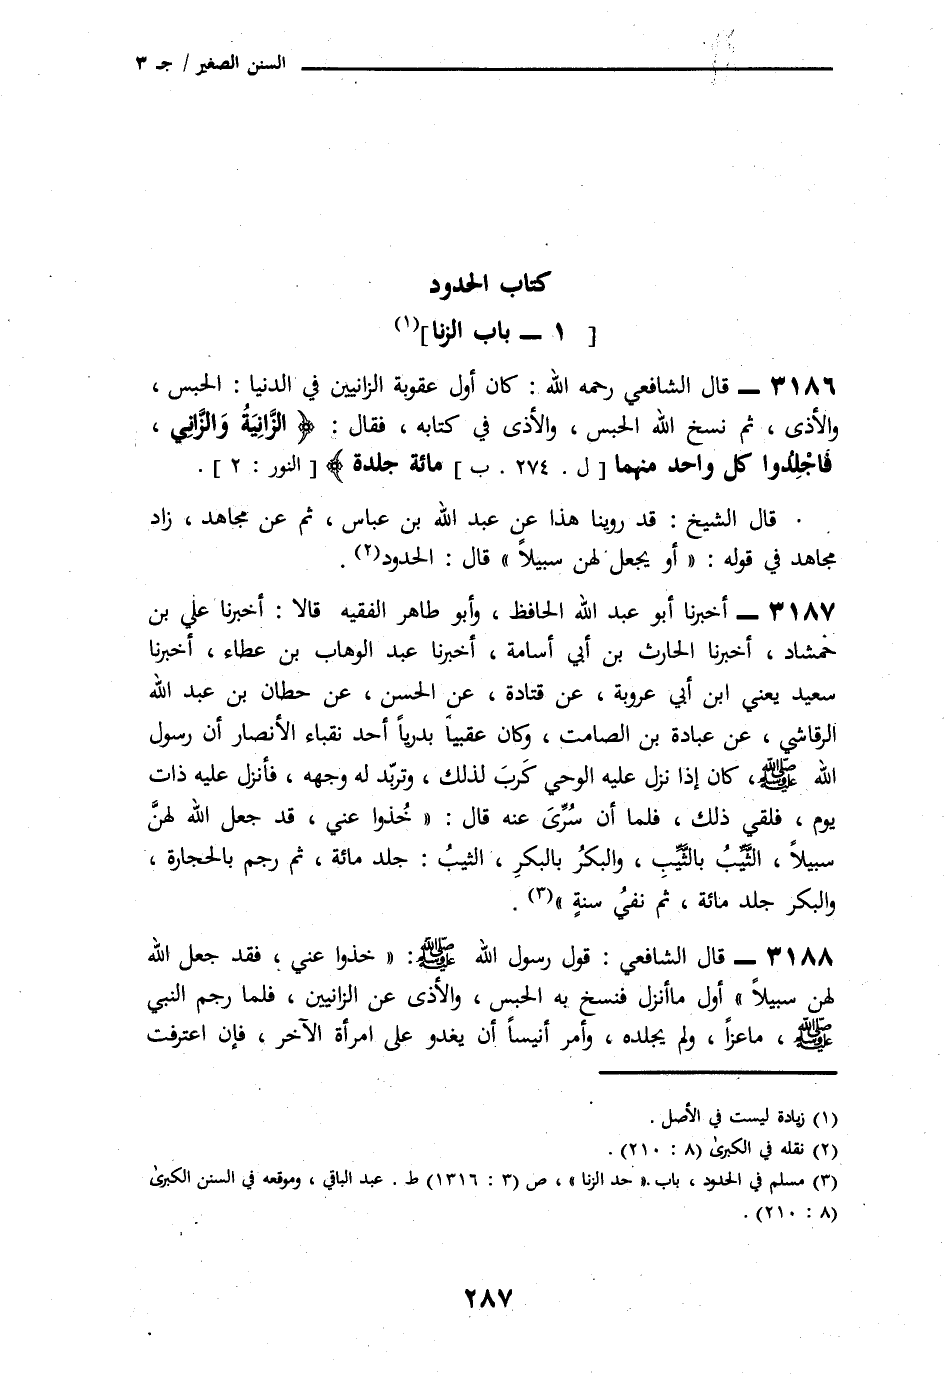 السنن الصغير / جـ ٣
كتاب الحدود
[ ١ ــ باب الزنا](١)
٣١٨٦ ــ قال الشافعي رحمه الله : كان أول عقوبة الزانيين في الدنيا : الحبس ،
والأذى ، ثم نسخ الله الحبس ، والأذى في كتابه ، فقال : ﴿ الزَّانِيَةُ وَالزَّانِي ،
فَاجْلِدُوا كل واحد منهما [ ل . ٢٧٤ . ب ] مائة جلدة ﴾ [ النور : ٢ ] .
٠ قال الشيخ : قد روينا هذا عن عبد الله بن عباس ، ثم عن مجاهد ، زاد
مجاهد في قوله : « أو يجعل لهن سبيلاً » قال : الحدود(٢) .
٣١٨٧ ــ أخبرنا أبو عبد الله الحافظ ، وأبو طاهر الفقيه قالا : أخبرنا علي بن
حمشاد ، أخبرنا الحارث بن أبي أسامة ، أخبرنا عبد الوهاب بن عطاء ، أخبرنا
سعيد يعني ابن أبي عروبة ، عن قتادة ، عن الحسن ، عن حطان بن عبد الله
الرقاشي ، عن عبادة بن الصامت ، وكان عقبياً بدرياً أحد نقباء الأنصار أن رسول
الله ﷺ ، كان إذا نزل عليه الوحي كَربَ لذلك ، وتربّد له وجهه ، فأنزل عليه ذات
يوم ، فلقي ذلك ، فلما أن سُرِّىَ عنه قال : « خُذوا عني ، قد جعل الله لهنَّ
سبيلاً ، الثَّيِّبُ بالثَّيِّبِ ، والبكرُ بالبكرِ ، الثيبُ : جلد مائة ، ثم رجم بالحجارة ،
والبكر جلد مائة ، ثم نفيُ سنةٍ »(٣) .
٣١٨٨ ــ قال الشافعي : قول رسول الله ﷺ : « خذوا عني ، فقد جعل الله
لهن سبيلاً » أول ماأنزل فنسخ به الحبس ، والأذى عن الزانيين ، فلما رجم النبي
ﷺ ، ماعزاً ، ولم يجلده ، وأمر أنيساً أن يغدو على امرأة الآخر ، فإن اعترفت
(١) زيادة ليست في الأصل .
(٢) نقله في الكبرىٰ (٨ : ٢١٠) .
(٣) مسلم في الحدود ، باب « حد الزنا » ، ص (٣ : ١٣١٦) ط . عبد الباقي ، وموقعه في السنن الكبرىٰ
(٨ : ٢١٠) .
٢٨٧